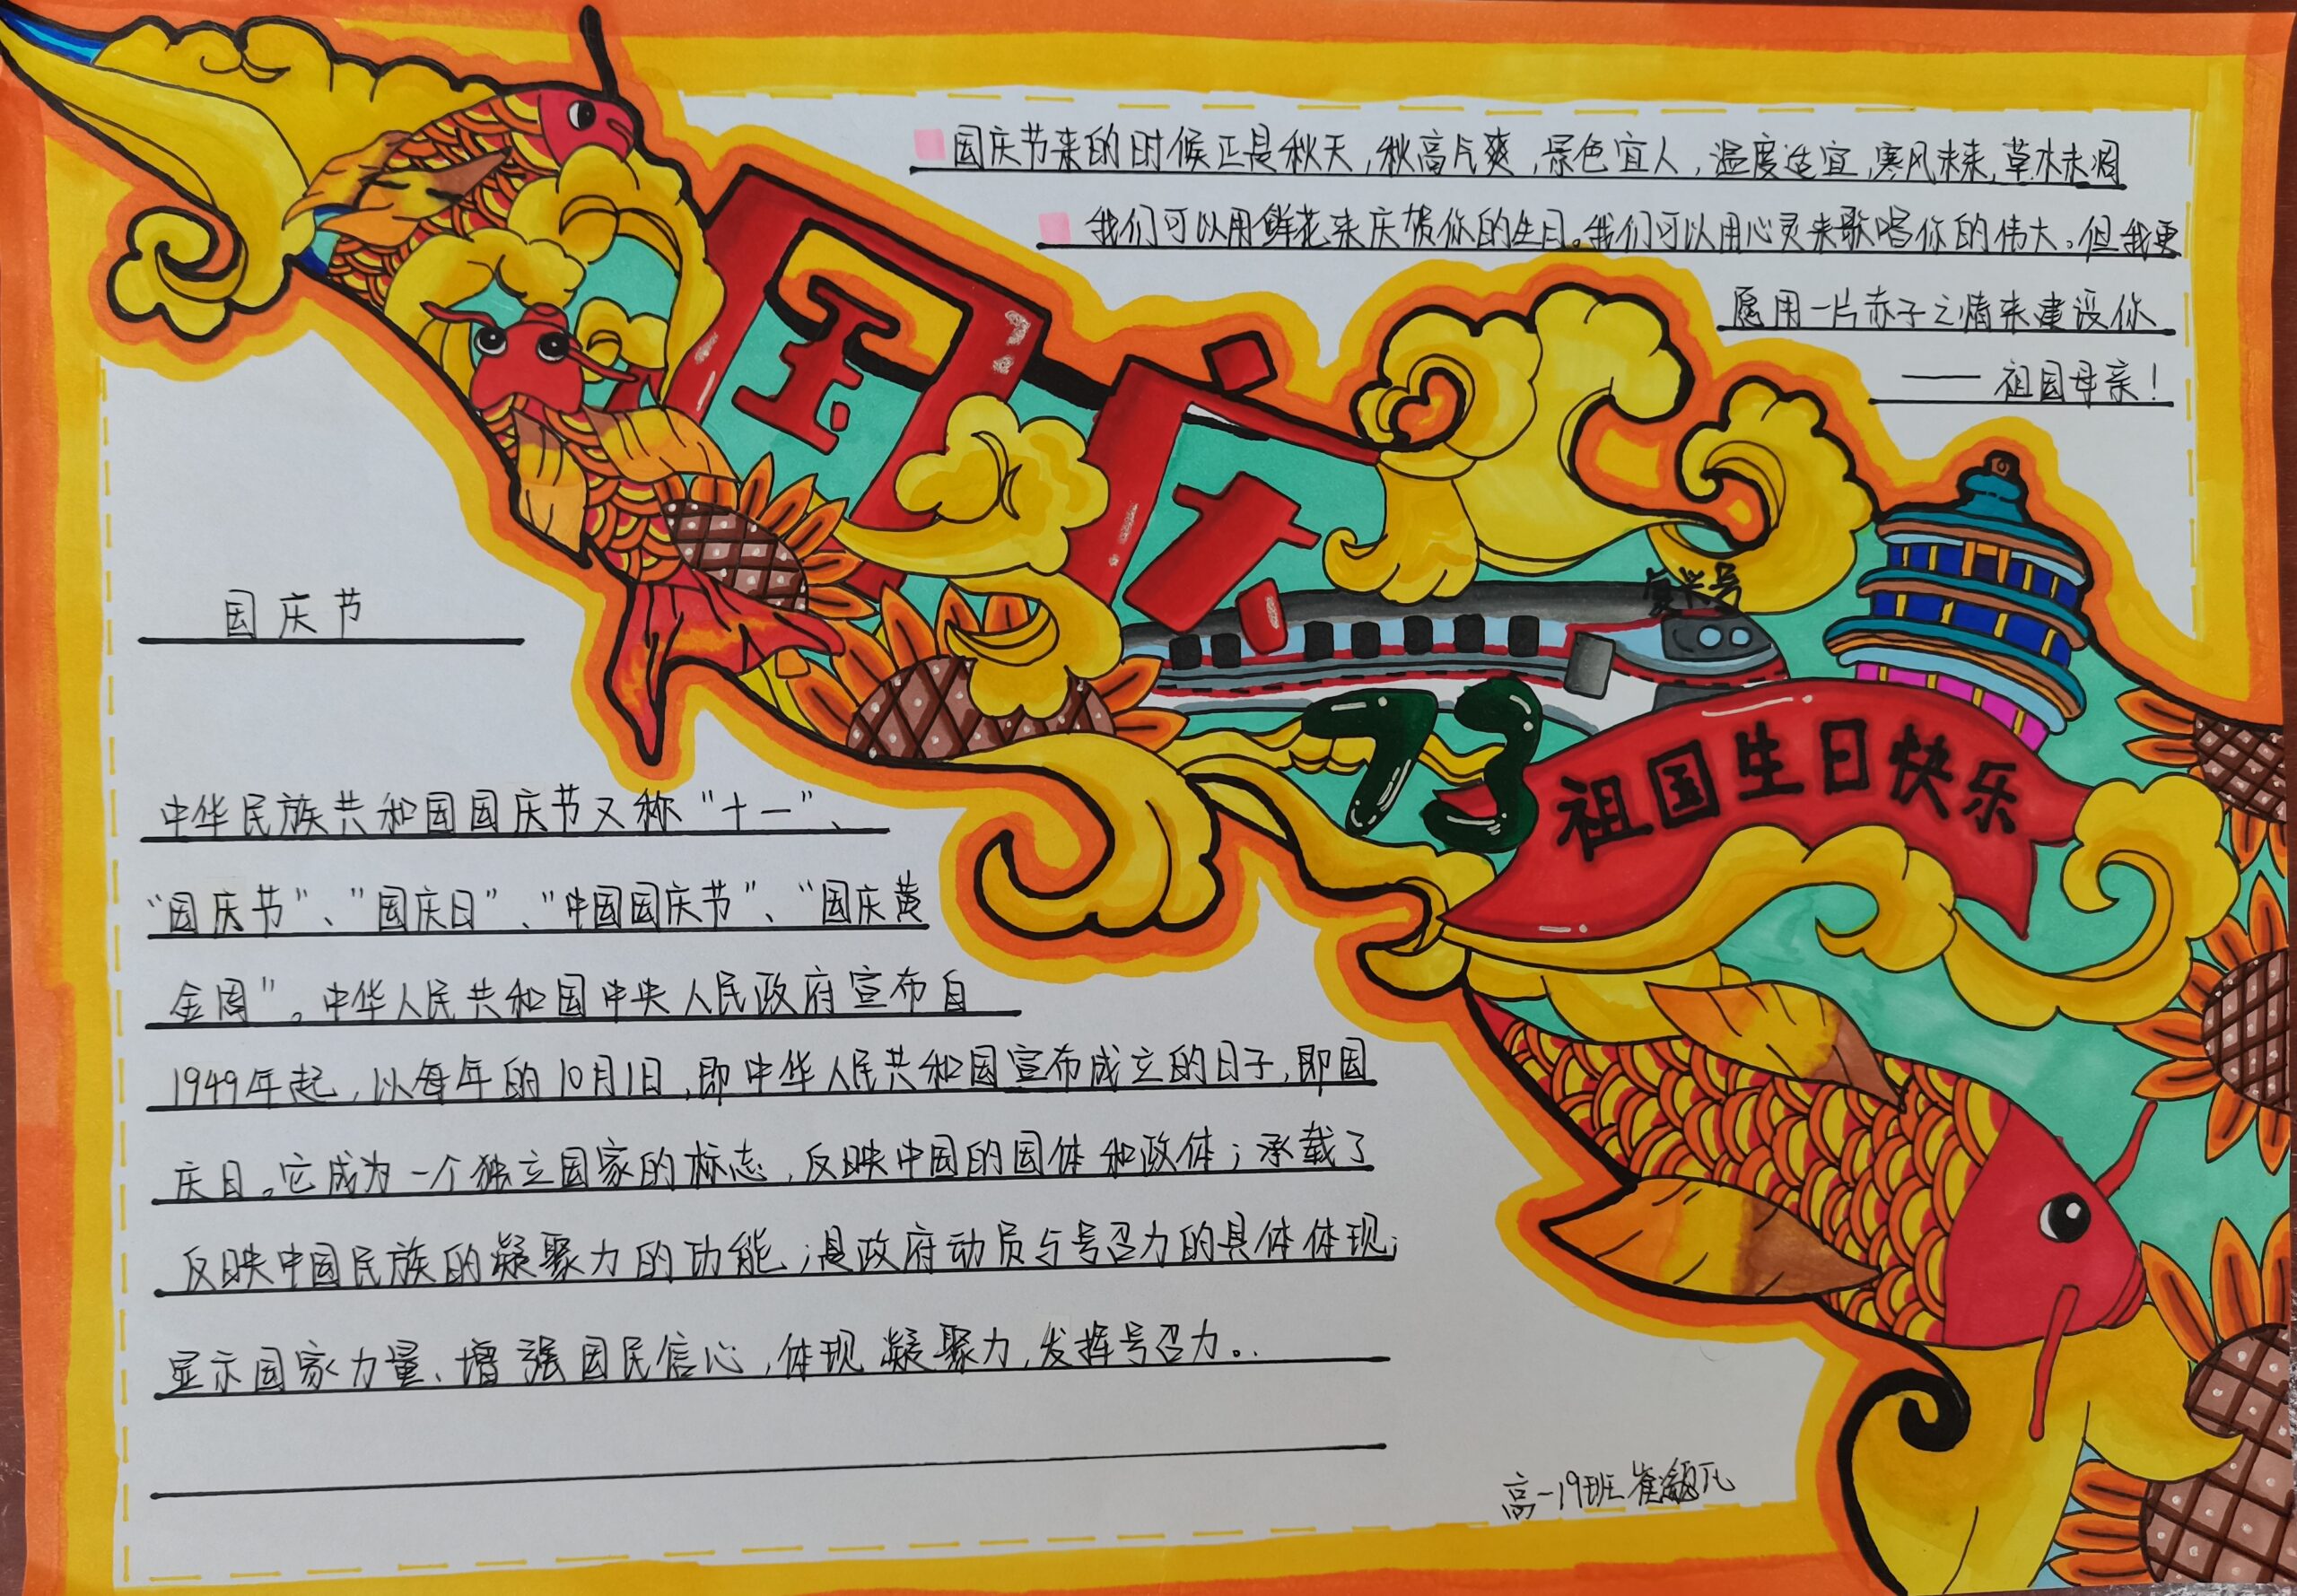 国庆节来的时候正是秋天,秋高气爽,景色宜人,温度适宜,寒风未来,草木未凋
我们可以用鲜花来庆贺你的生日。我们可以用心灵来歌唱你的伟大。但我更
愿用一片赤子之情来建设你
——祖国母亲!
国庆
复兴号
73
祖国生日快乐
国庆节
中华民族共和国国庆节又称“十一”、
“国庆节”、“国庆日”、“中国国庆节”、“国庆黄
金周”。中华人民共和国中央人民政府宣布自
1949年起,以每年的10月1日,即中华人民共和国宣布成立的日子,即国
庆日。它成为一个独立国家的标志,反映中国的国体和政体;承载了
反映中国民族的凝聚力的功能;是政府动员与号召力的具体体现;
显示国家力量、增强国民信心,体现凝聚力,发挥号召力。.
高一19班崔